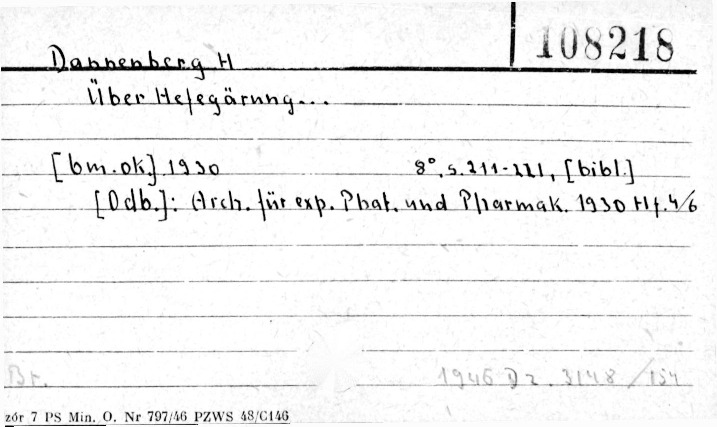 108218
Dannenberg H
Über Hefegärung...
[bm.ok.] 1930 8°, s. 211-221, [bibl.]
[Odb.]: Arch. für exp. Phat. und Pharmak. 1930 Hf. 4/6
Br. 1946 Dz. 3148/154
zór 7 PS Min. O. Nr 797/46 PZWS 48/C146